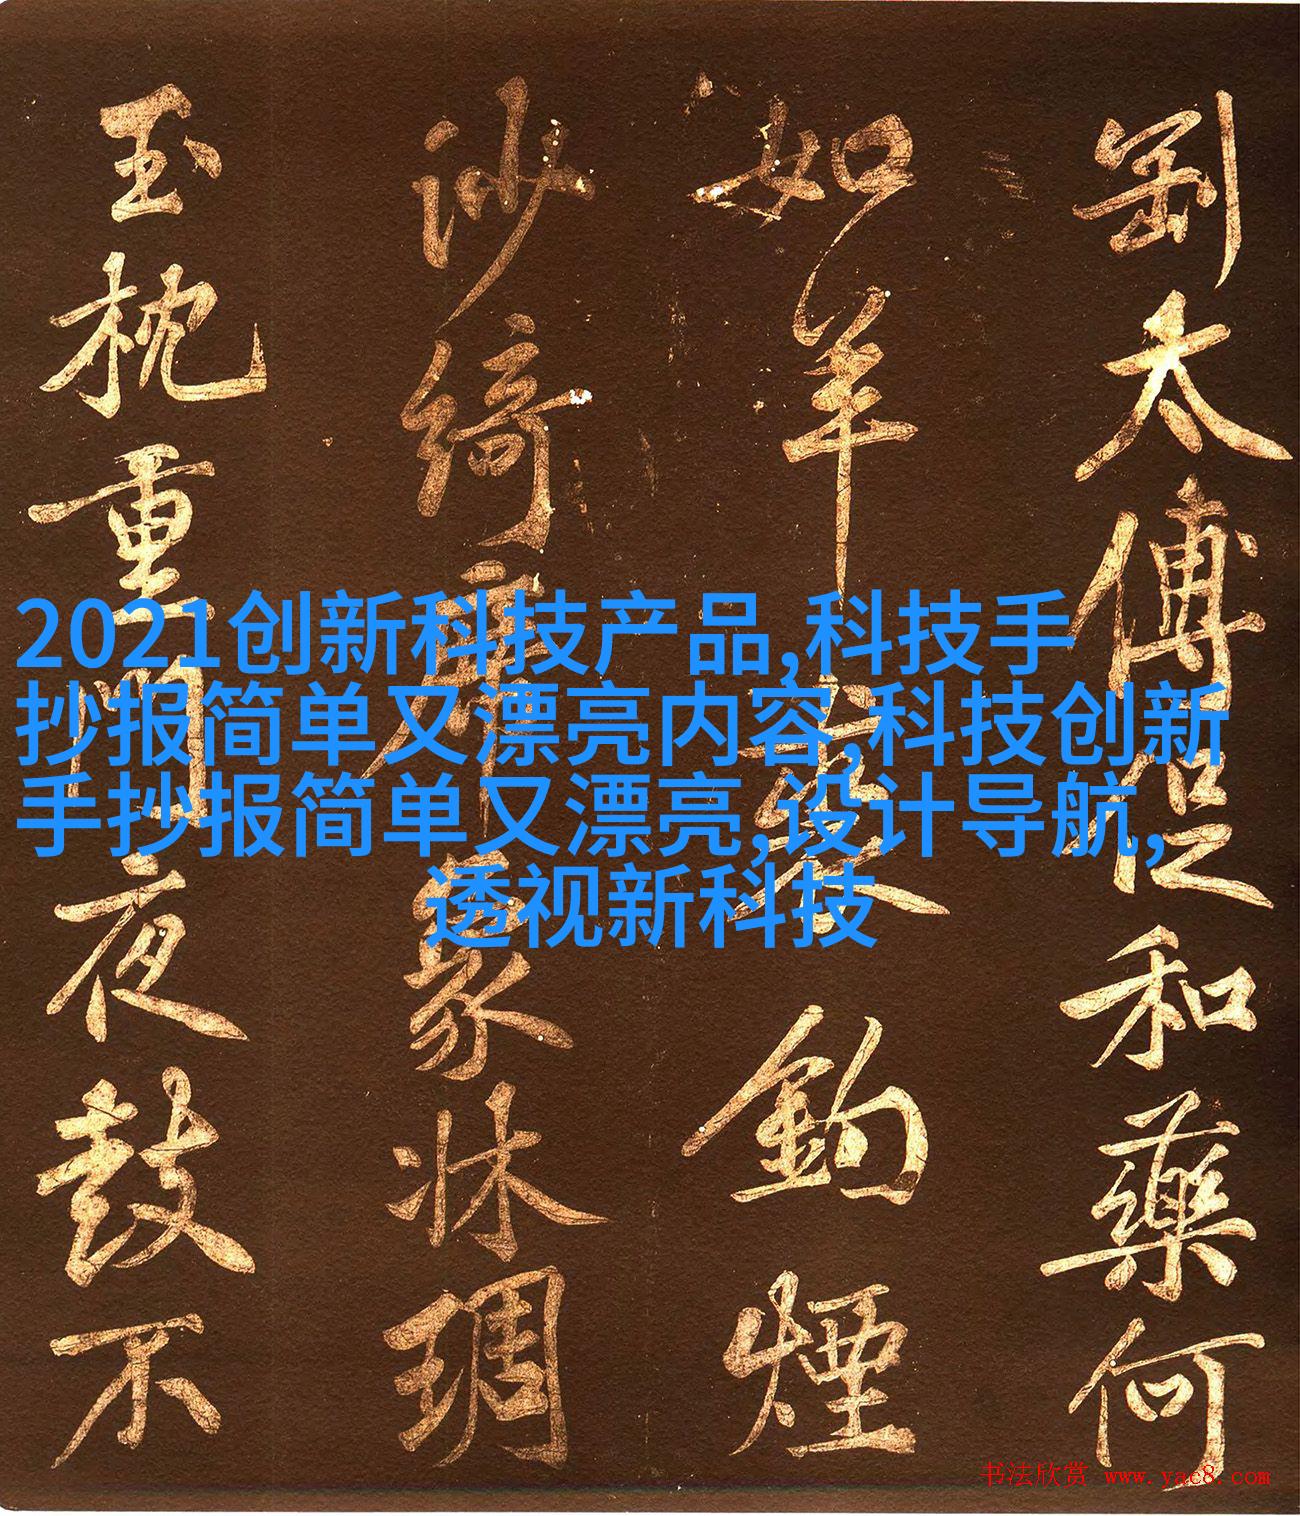 劉太傅
和藥何
如羊
鈎煙
沙綺
象牀琱
玉枕重門
夜鼓不
2021创新科技产品,科技手
抄报简单又漂亮内容,科技创新
手抄报简单又漂亮,设计导航,
透视新科技
书法欣赏 www.yac8.com